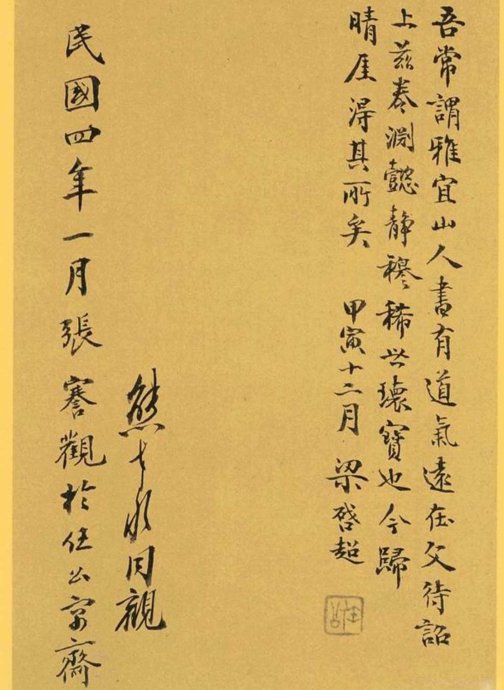 吾常謂雅宜山人書有道氣遠在文待詔
上茲卷淵懿靜穆稀世瓌寶也今歸
晴厓得其所矣 甲寅十二月 梁啓超
熊 同觀
民國四年一月張謇觀於任公寓齋